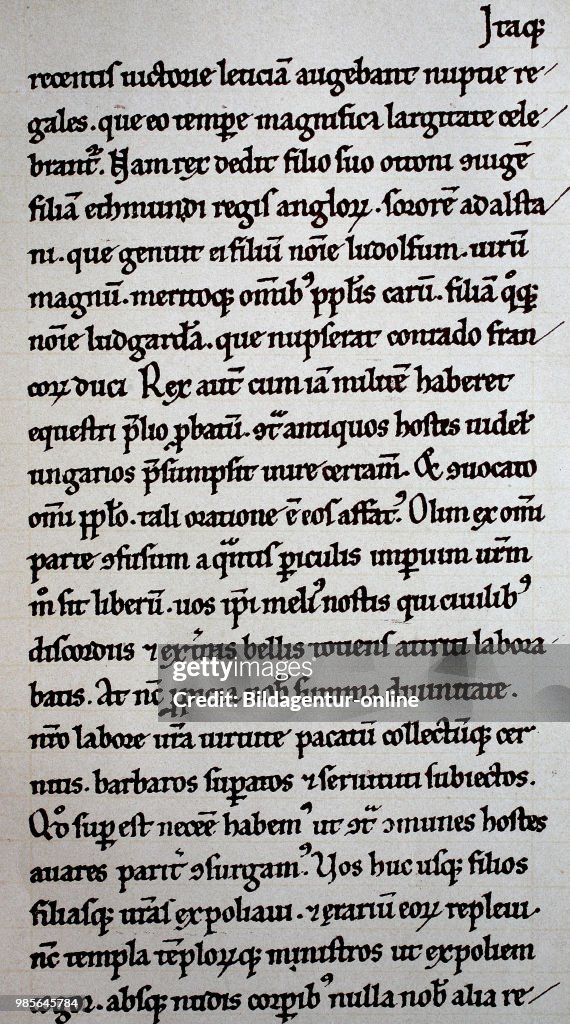 Itaq;
recentis uictorie leticiā augebant nuptie re-
gales. que eo tempe̅ magnifica largitate cele-
brant᷑. Nam rex dedit filio suo ottoni ꝯiugē
filiā ethmundi regis anglorꝝ. sororē adalsta-
ni. que genuit ei filiū noīe ludolfum. uirū
magnū. meritoq; omīb᷒ ppl̄is carū. filiā qͦq;
noīe ludgardā. que nupserat conrado fran-
corꝝ duci Rex aut̄ cum iā militē haberet
equestri p̄lio ꝓbatū. ꝯtᵃ antiquos hostes uidel̄
ungarios p̄sumpsit inire certam̄. Et ꝯuocato
omī ppl̄o. tali oratione ē eos affat᷒. Olim ex omī
parte ꝯfusum a qᵃntis ꝑiculis imꝑium ur̄m
mͦ sit liberū. uos ip̄i meli᷒ nostis qui ciuilib᷒
discordiis ⁊ ext̓nis bellis totiens attriti labora
batis. At nc̄ summa diuinitate.
nr̄o labore ur̄a uirtute pacatū collectūq; cer
nitis. barbaros suꝑatos ⁊ seruituti subiectos.
Qͦd suꝑ est necēe habem᷒ ut ꝯtᵃ ꝯmunes hostes
auares parit̓ ꝯsurgam᷒. Vos huc usq; filios
filiasq; ur̄as expoliaui. ⁊ erariū eorꝝ repleui.
nc̄ templa tēplorꝝq; ministros ut expoliem
cogor. absq; nudis corꝑib᷒ nulla nob̄ alia re-
gettyimages®
Credit: Bildagentur-online
985645784